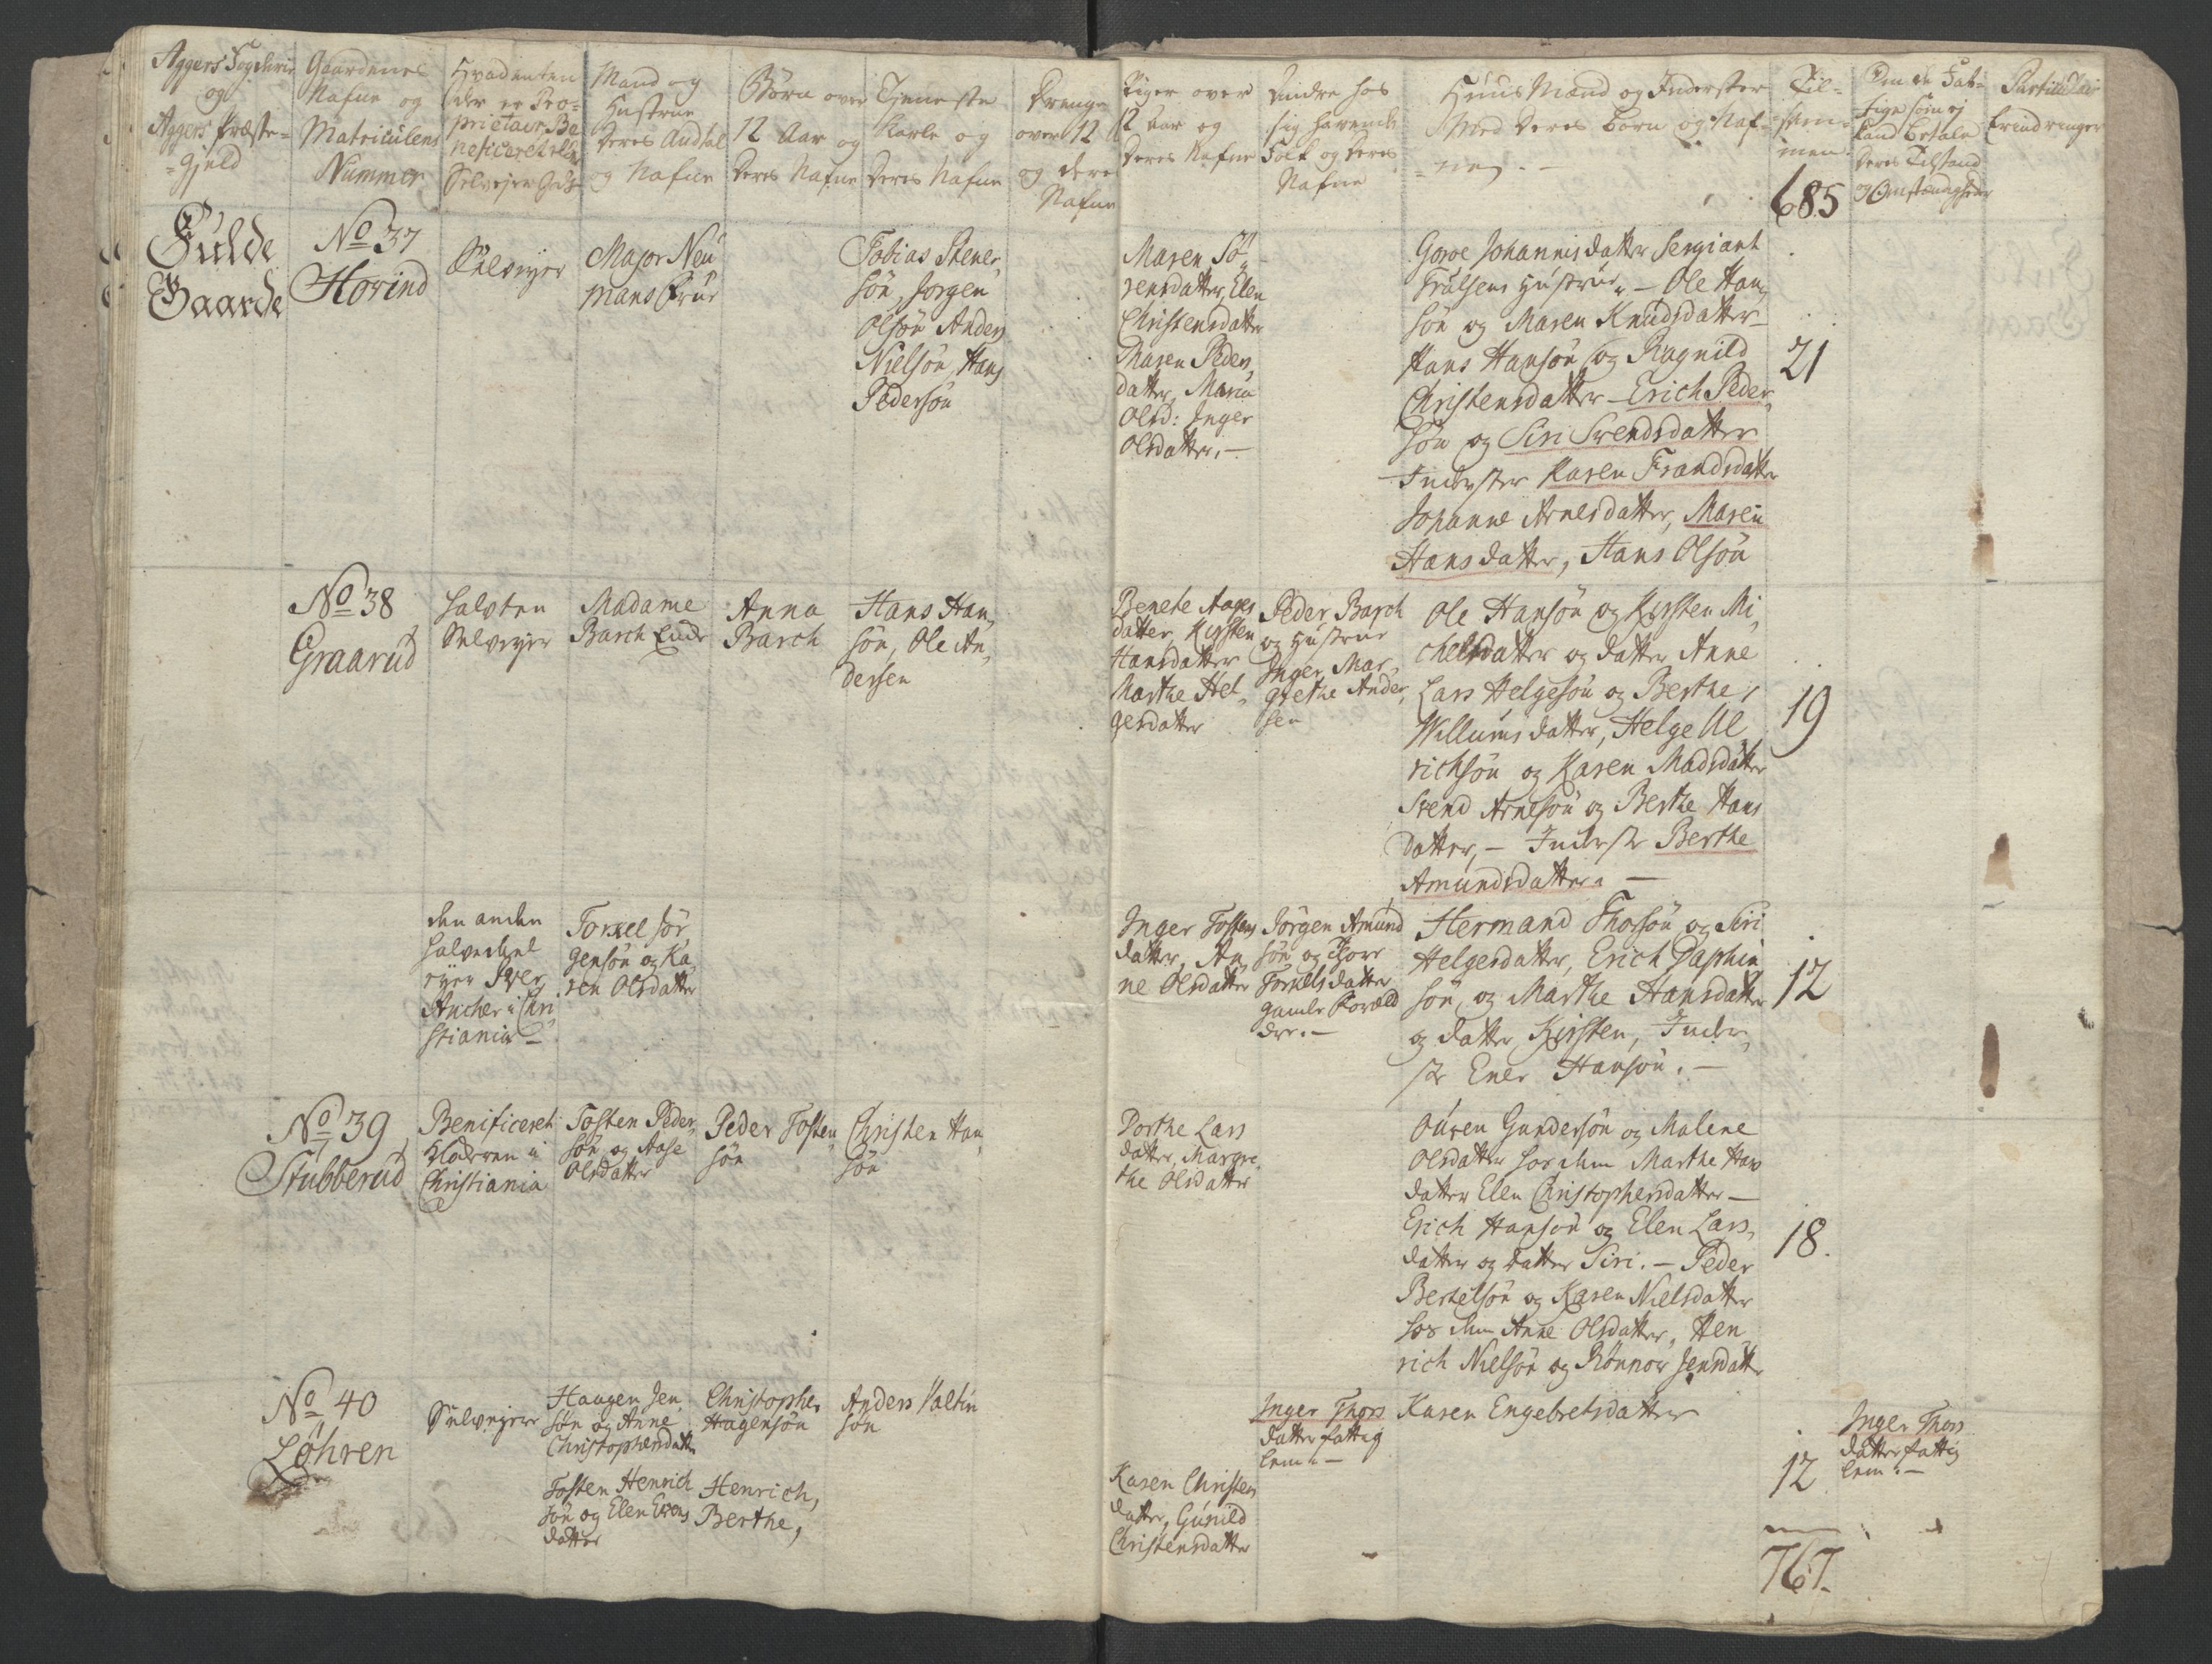 Aggers Fogderie
og
Aggers Præste-
-Gjeld
Gaardenes
Nafne og
Matriculens
Nummer
Hvadenten
der er Pro-
prietair, Be
neficeret eller
Selvejer Gods
Mand og
Hustrue
Deres Andtal
og Nafne
Børn over
12 Aar og
Deres Nafne
Tjeneste
Karle og
Deres Nafne
Drenge
over 12
og Dere
Nafne
Piger over
12 Aar og
Deres Nafne
Andre hos
sig havende
Folk og Deres
Nafne
Huus Mænd og Inderster
Med Deres Børn og Naf-
-ne
Til-
sam-
men
Om de Fat-
tige som ej
kand betale
Deres Tilstand
og Omstændigheder
Particulair
Erindringer
685
Fulde
Gaarde
No 37
Hovind
Selveyer
Major Neu
mans Frue
Tobias Stener,
søn, Jørgen
Olsøn Anders
Nielsøn, Hans
Pedersøn
Maren Sø,
rensdatter, Elen
Christensdatter
Maren Peders,
datter, Maria
Olsd: Inger
Olsdatter. -
Goroe Johannisdatter Sergiant
Trulsens Hustrue, - Ole Han,
søn og Maren Knudsdatter -
Hans Hansøn og Ragnild
Christensdatter - Erich Peder,
søn og Siri Svendsdatter
- Inderster Karen Frandsdatter
Johanne Arnesdatter, Maren
Hansdatter, Hans Olsøn
21
No 38
Graarud
halvten
Selveyer
Madame
Barch Enke
Anna
Barch
Hans Han,
søn, Ole An,
dersen
Benete Aages
datter, Kirsten
Hansdatter
Marthe Hel,
gesdatter
Peder Barch
og Hustrue
Inger Mar,
grethe Ander,
sen
Ole Hansøn og Kirsten Mi,
chelsdatter og datter Anne
Lars Helgesøn og Berthe,
Willumsdatter, Helge Ul
richsøn og Karen Madsdatter
Svend Arnesøn og Berthe Hans
datter, - Inderste Berthe
Amundsdatter. -
19
den anden
halvedeel
eyer Iver
Ancher i Chri
stiania -
Torkel Jør
gensøn og Ka,
ren Olsdatter
Inger Tostens
datter, An,
ne Olsdatter
Jørgen Amund
søn og Thore
Torkelsdatter
gamle Foræld
dre. -
Hermand Thosøn og Siri
Helgesdatter, Erich Daphin
søn, og Marthe Hansdatter
og datter Kirsten, Inder,
ste Ener Hansøn. -
12
No 39
Stubberud
Benificeret
Klosteren i
Christiania
Tosten Peder,
søn og Aase
Olsdatter
Peder Tosten,
søn
Christen Han,
søn
Dorthe Lars
datter, Margre,
the Olsdatter
Ouren Gundersøn og Malene
Olsdatter hos dem Marthe Hans
datter Elen Christophersdatter -
Erich Hansøn og Elen Lars,
datter og datter Siri. - Peder
Bertelsøn og Karen Nielsdatter
hos dem Anne Olsdatter, Hen
rich Nielsøn og Rønnov Jensdatter
18.
No 40
Løhren
Selvejere
Haagen Jen
søn og Anne
Christophersdatter
Christopher
Hagensøn
Anders Valtin
søn
Inger Thors
datter fattig
lem. -
Karen Engebretsdatter
Inger Thors
datter fattig
lem. -
12
Tosten Henrich
søn og Elen Evens
datter
Henrich,
Berthe,
Karen Christens
datter, Gunild
Christensdatter
767.